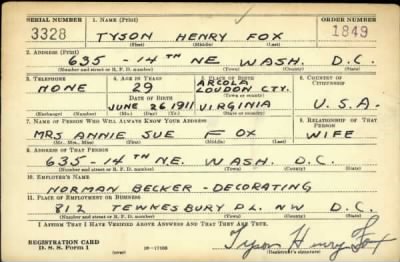 SERIAL NUMBER 1. NAME (Print) ORDER NUMBER
3328 TYSON HENRY FOX 1849
(First) (Middle) (Last)
2. ADDRESS (Print)
635 14TH NE WASH. D.C.
(Number and street or R. F. D. number) (Town) (County) (State)
3. TELEPHONE 4. AGE IN YEARS 5. PLACE OF BIRTH 6. COUNTRY OF CITIZENSHIP
NONE 29 ARCOLA LOUDON CTY.
DATE OF BIRTH (Town or county)
JUNE 26 1911 VIRGINIA U.S.A.
(Exchange) (Number) (Mo.) (Day) (Yr.) (State or country)
7. NAME OF PERSON WHO WILL ALWAYS KNOW YOUR ADDRESS 8. RELATIONSHIP OF THAT PERSON
MRS ANNIE SUE FOX WIFE
(Mr., Mrs., Miss) (First) (Middle) (Last)
9. ADDRESS OF THAT PERSON
635-14TH N.E. WASH. D.C.
(Number and street or R. F. D. number) (Town) (County) (State)
10. EMPLOYER'S NAME
NORMAN BECKER - DECORATING
11. PLACE OF EMPLOYMENT OR BUSINESS
812 TEWKESBURY PL. NW D.C.
(Number and street or R. F. D. number) (Town) (County) (State)
I AFFIRM THAT I HAVE VERIFIED ABOVE ANSWERS AND THAT THEY ARE TRUE.
REGISTRATION CARD
D. S. S. Form 1 16-17105 Tyson Henry Fox